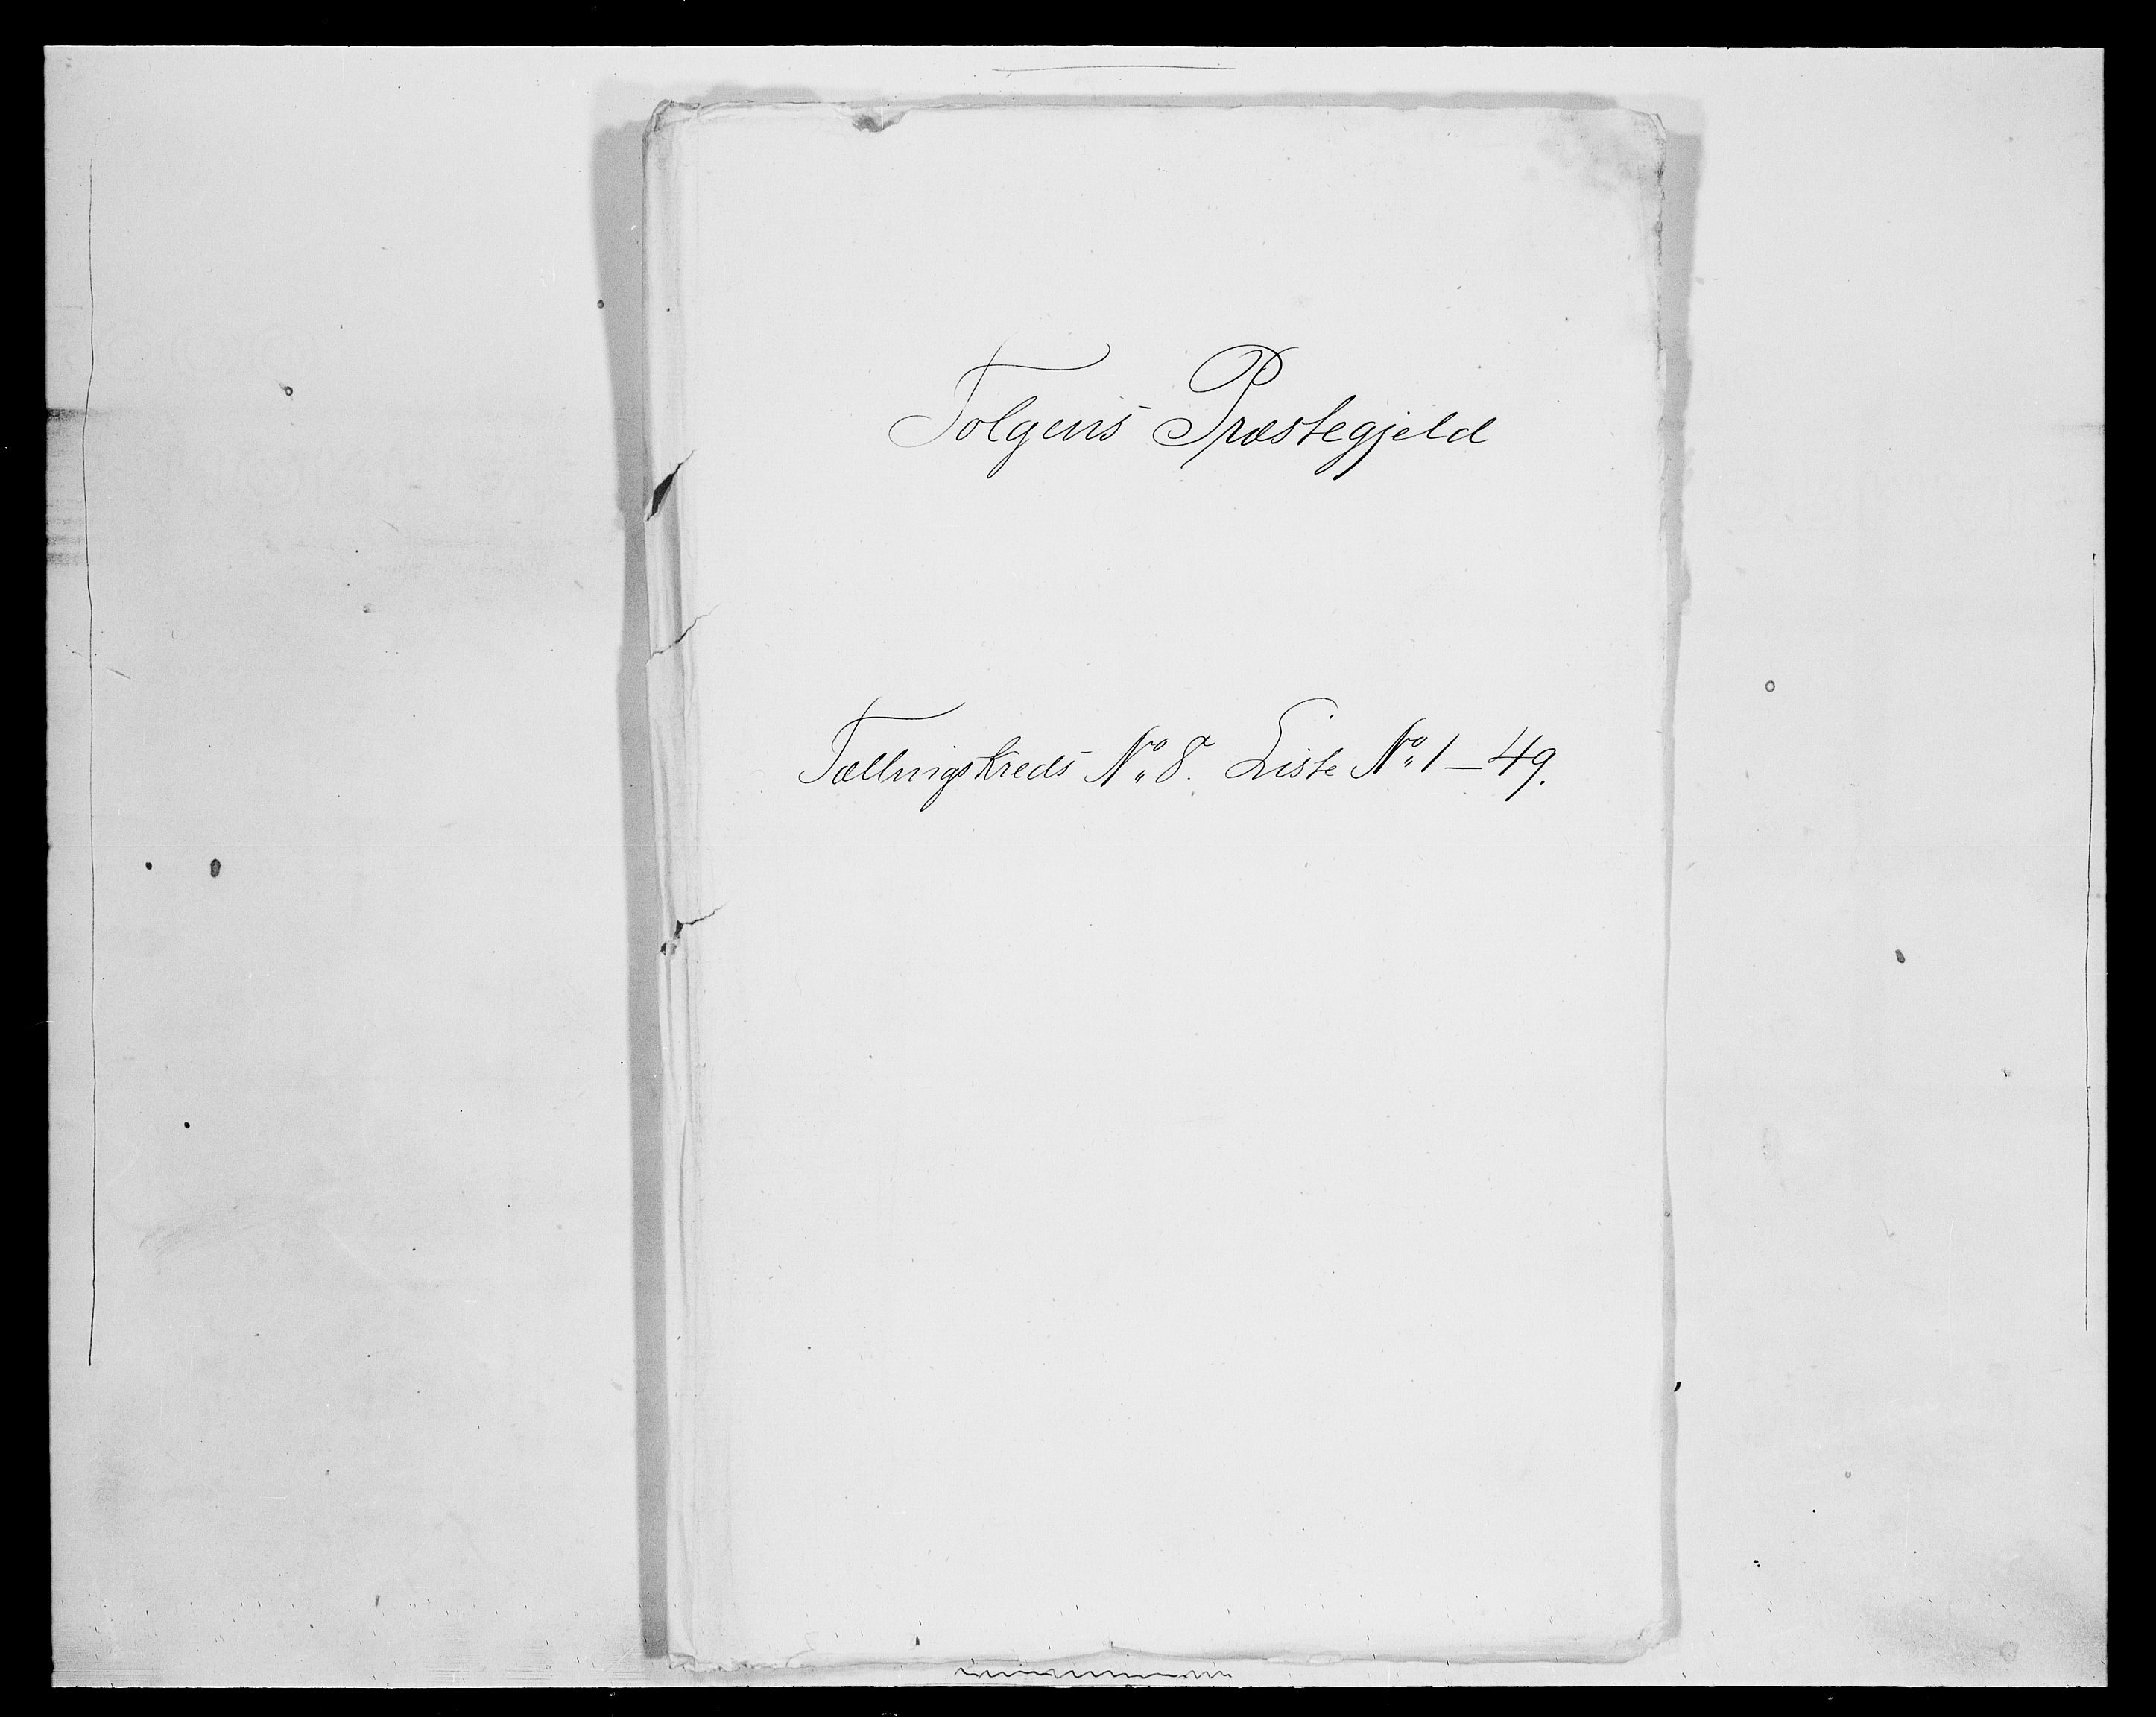 Tolgens Præstegjeld
Tællingskreds No 8. Liste No 1–49.